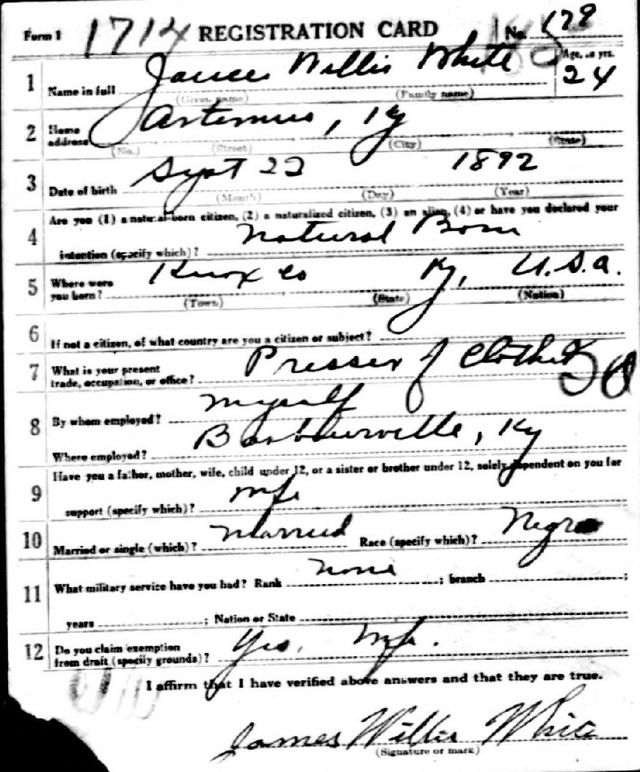 Form 1 1714 REGISTRATION CARD No. 178
1 Name in full James Willis White Age, in yrs. 24
(Given name) (Family name)
2 Home address Artemus, Ky
(No.) (Street) (City) (State)
3 Date of birth Sept 22 1892
(Month) (Day) (Year)
4 Are you (1) a natural-born citizen, (2) a naturalized citizen, (3) an alien, (4) or have you declared your
intention (specify which)? Natural Born
5 Where were you born? Knox Co Ky, U.S.a.
(Town) (State) (Nation)
6 If not a citizen, of what country are you a citizen or subject?
7 What is your present trade, occupation, or office? Presser of Clothes 20
8 By whom employed? myself
Where employed? Barbourville, Ky
9 Have you a father, mother, wife, child under 12, or a sister or brother under 12, solely dependent on you for
support (specify which)? wife
10 Married or single (which)? Married Race (specify which)? Negro
11 What military service have you had? Rank none ; branch ;
years ; Nation or State
12 Do you claim exemption from draft (specify grounds)? Yes, wife.
I affirm that I have verified above answers and that they are true.
James Willis White
(Signature or mark)